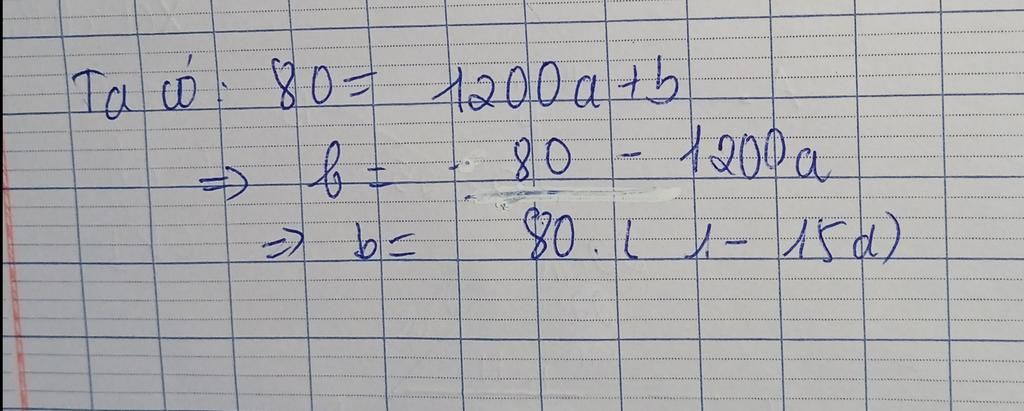 Ta có: 80 = 1200a + b
=> b = 80 - 1200a
=> b = 80 . ( 1 - 15a)